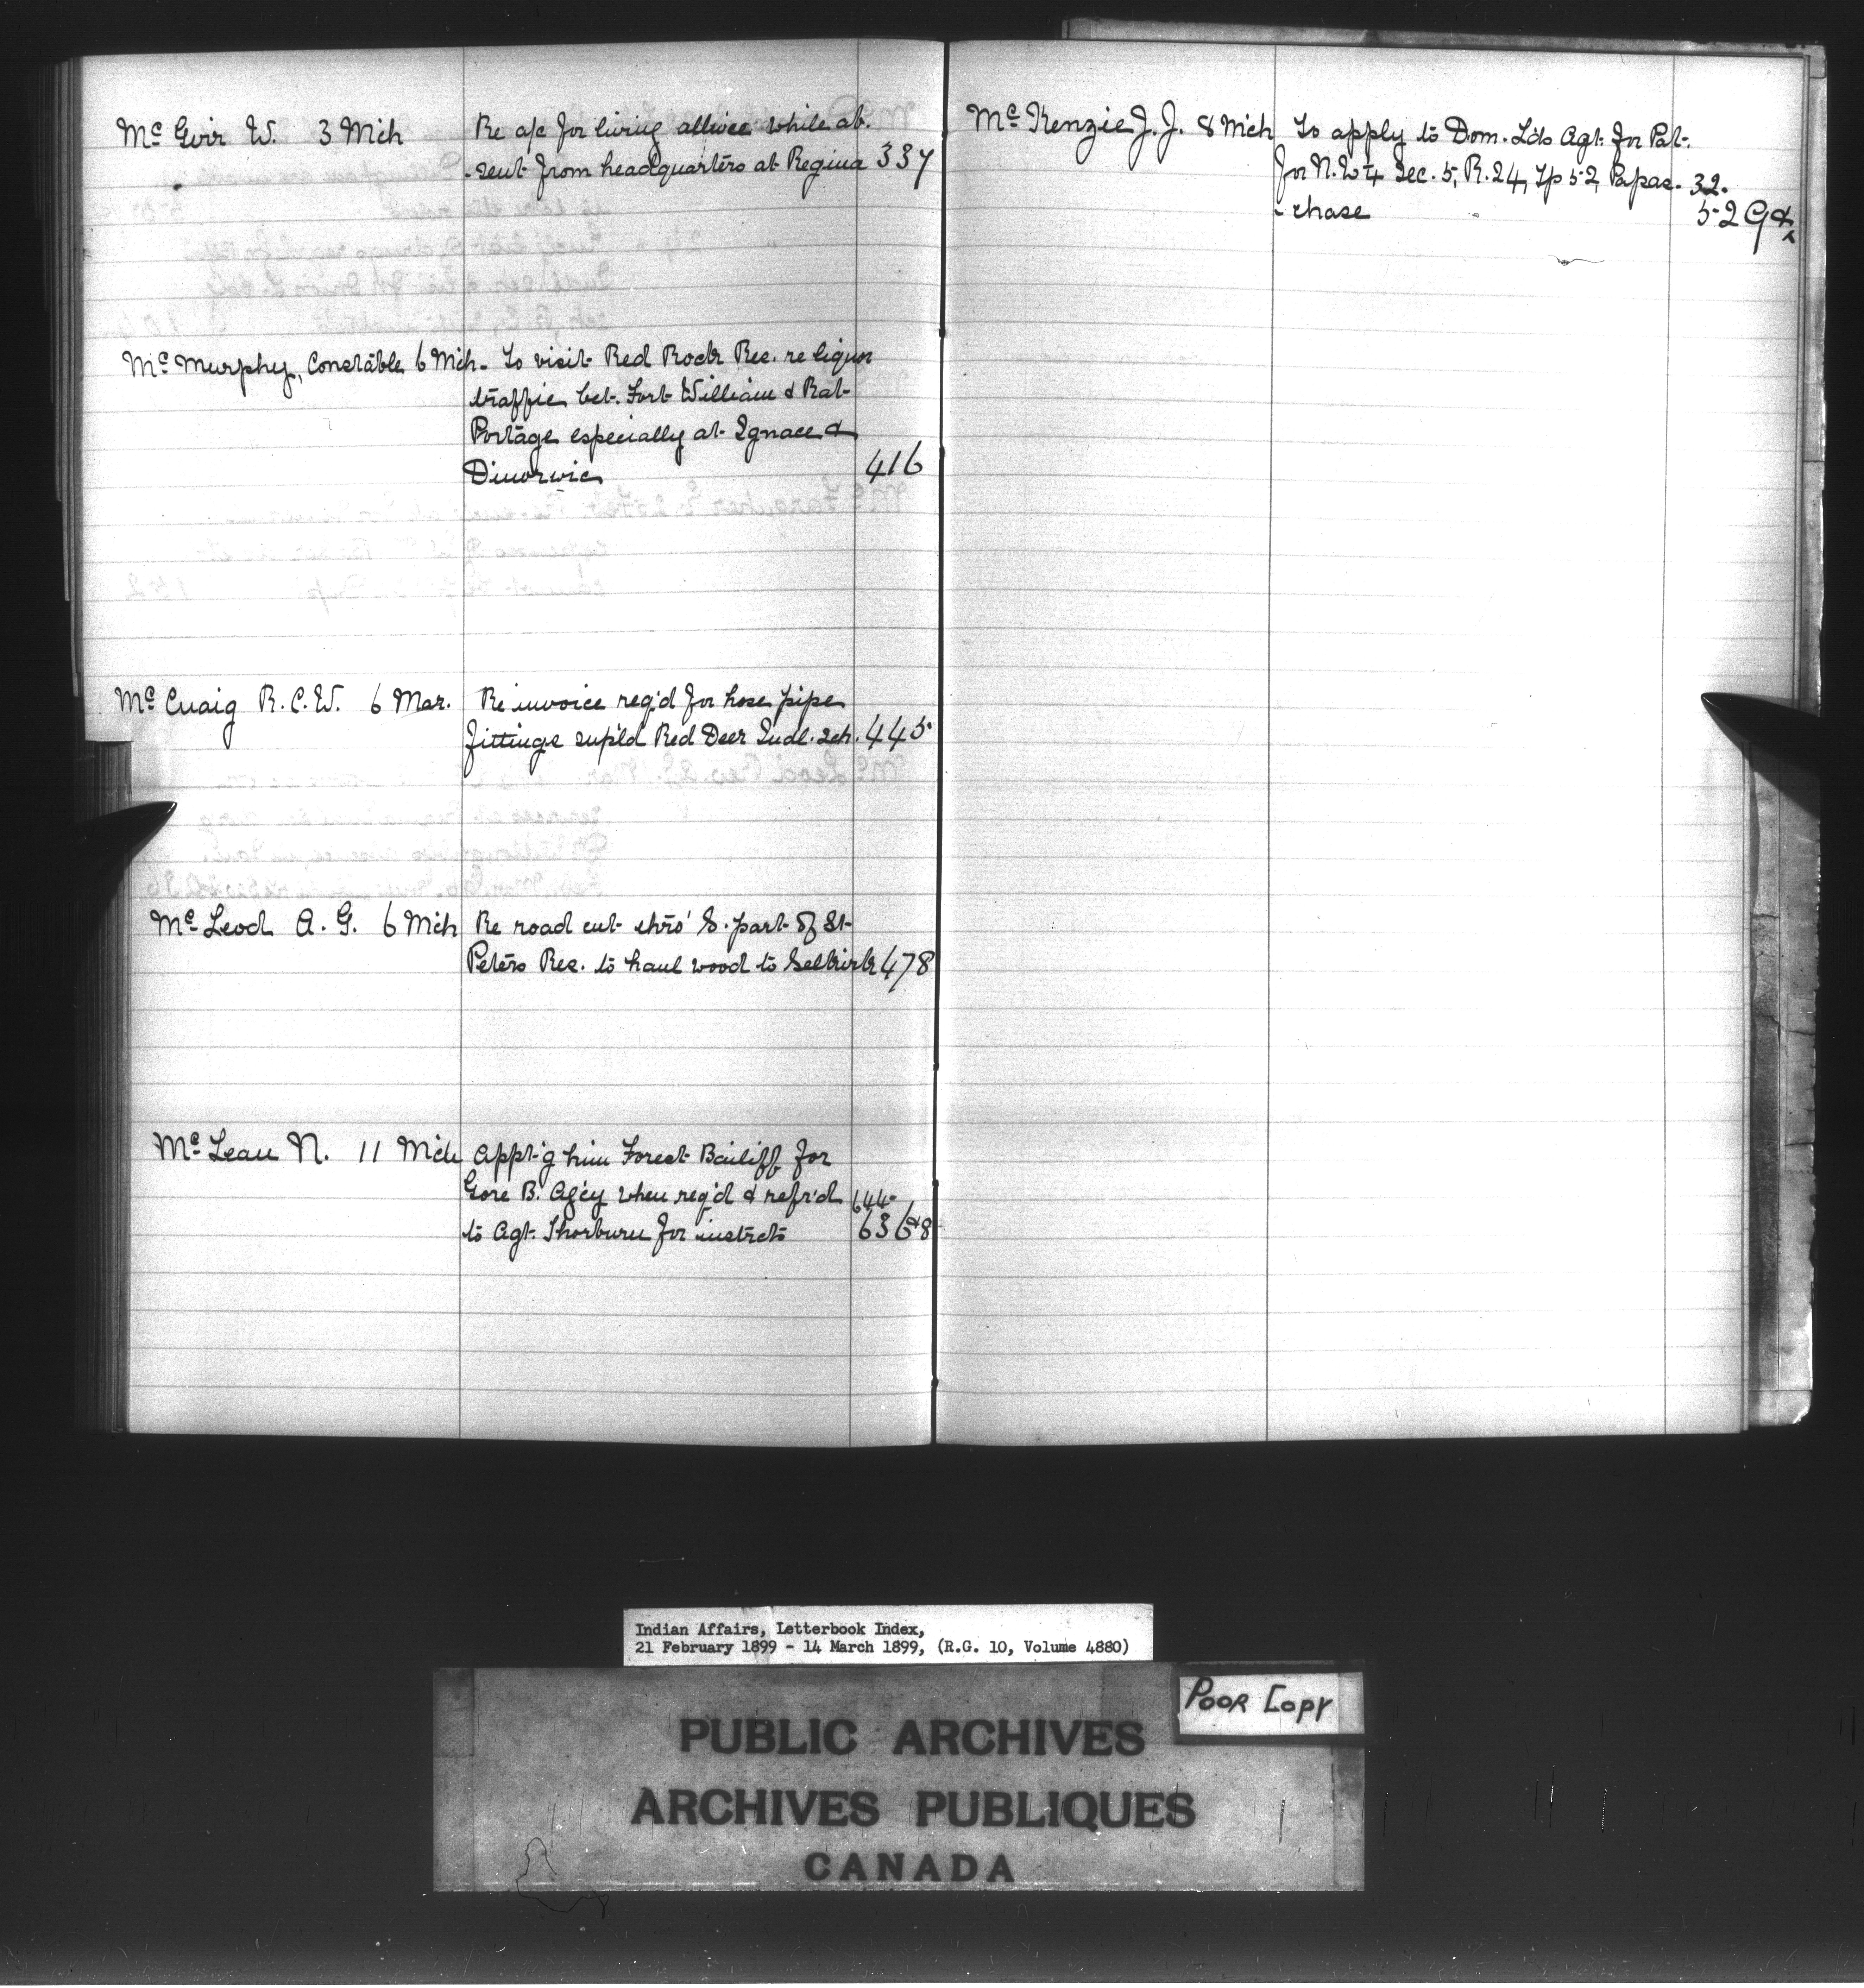 Mc Girr W. 3 Mch Re a/c for living allwce while ab-
-sent from headquarters at Regina 337
Mc Murphy, Constable 6 Mch - To visit Red Rock Res. re liquor
traffic bet. Fort William & Rat
Portage especially at Ignace &
Dinorwic 416
Mc Cuaig R.C.W. 6 Mar. Re invoice req'd for hose pipe
fittings sup'ld Red Deer Indl. Sch. 445
Mc Leod A. G. 6 Mch Re road cut thro' S. part of St
Peters Res. to haul wood to Selkirk 478
Mc Lean N. 11 Mch Appt'g him Forest Bailiff for
Gore B. Ag'cy when req'd & refr'd 644-
to Agt. Thorburn for instrcts 636&8
Mc Kenzie J. J. 8 Mch To apply to Dom. Lds Agt. for Pat.
for N.W¼ Sec. 5, R. 24, Tp 52, Papas- 32-
-chase 529&
Indian Affairs, Letterbook Index,
21 February 1899 - 14 March 1899, (R.G. 10, Volume 4880)
POOR COPY
PUBLIC ARCHIVES
ARCHIVES PUBLIQUES
CANADA